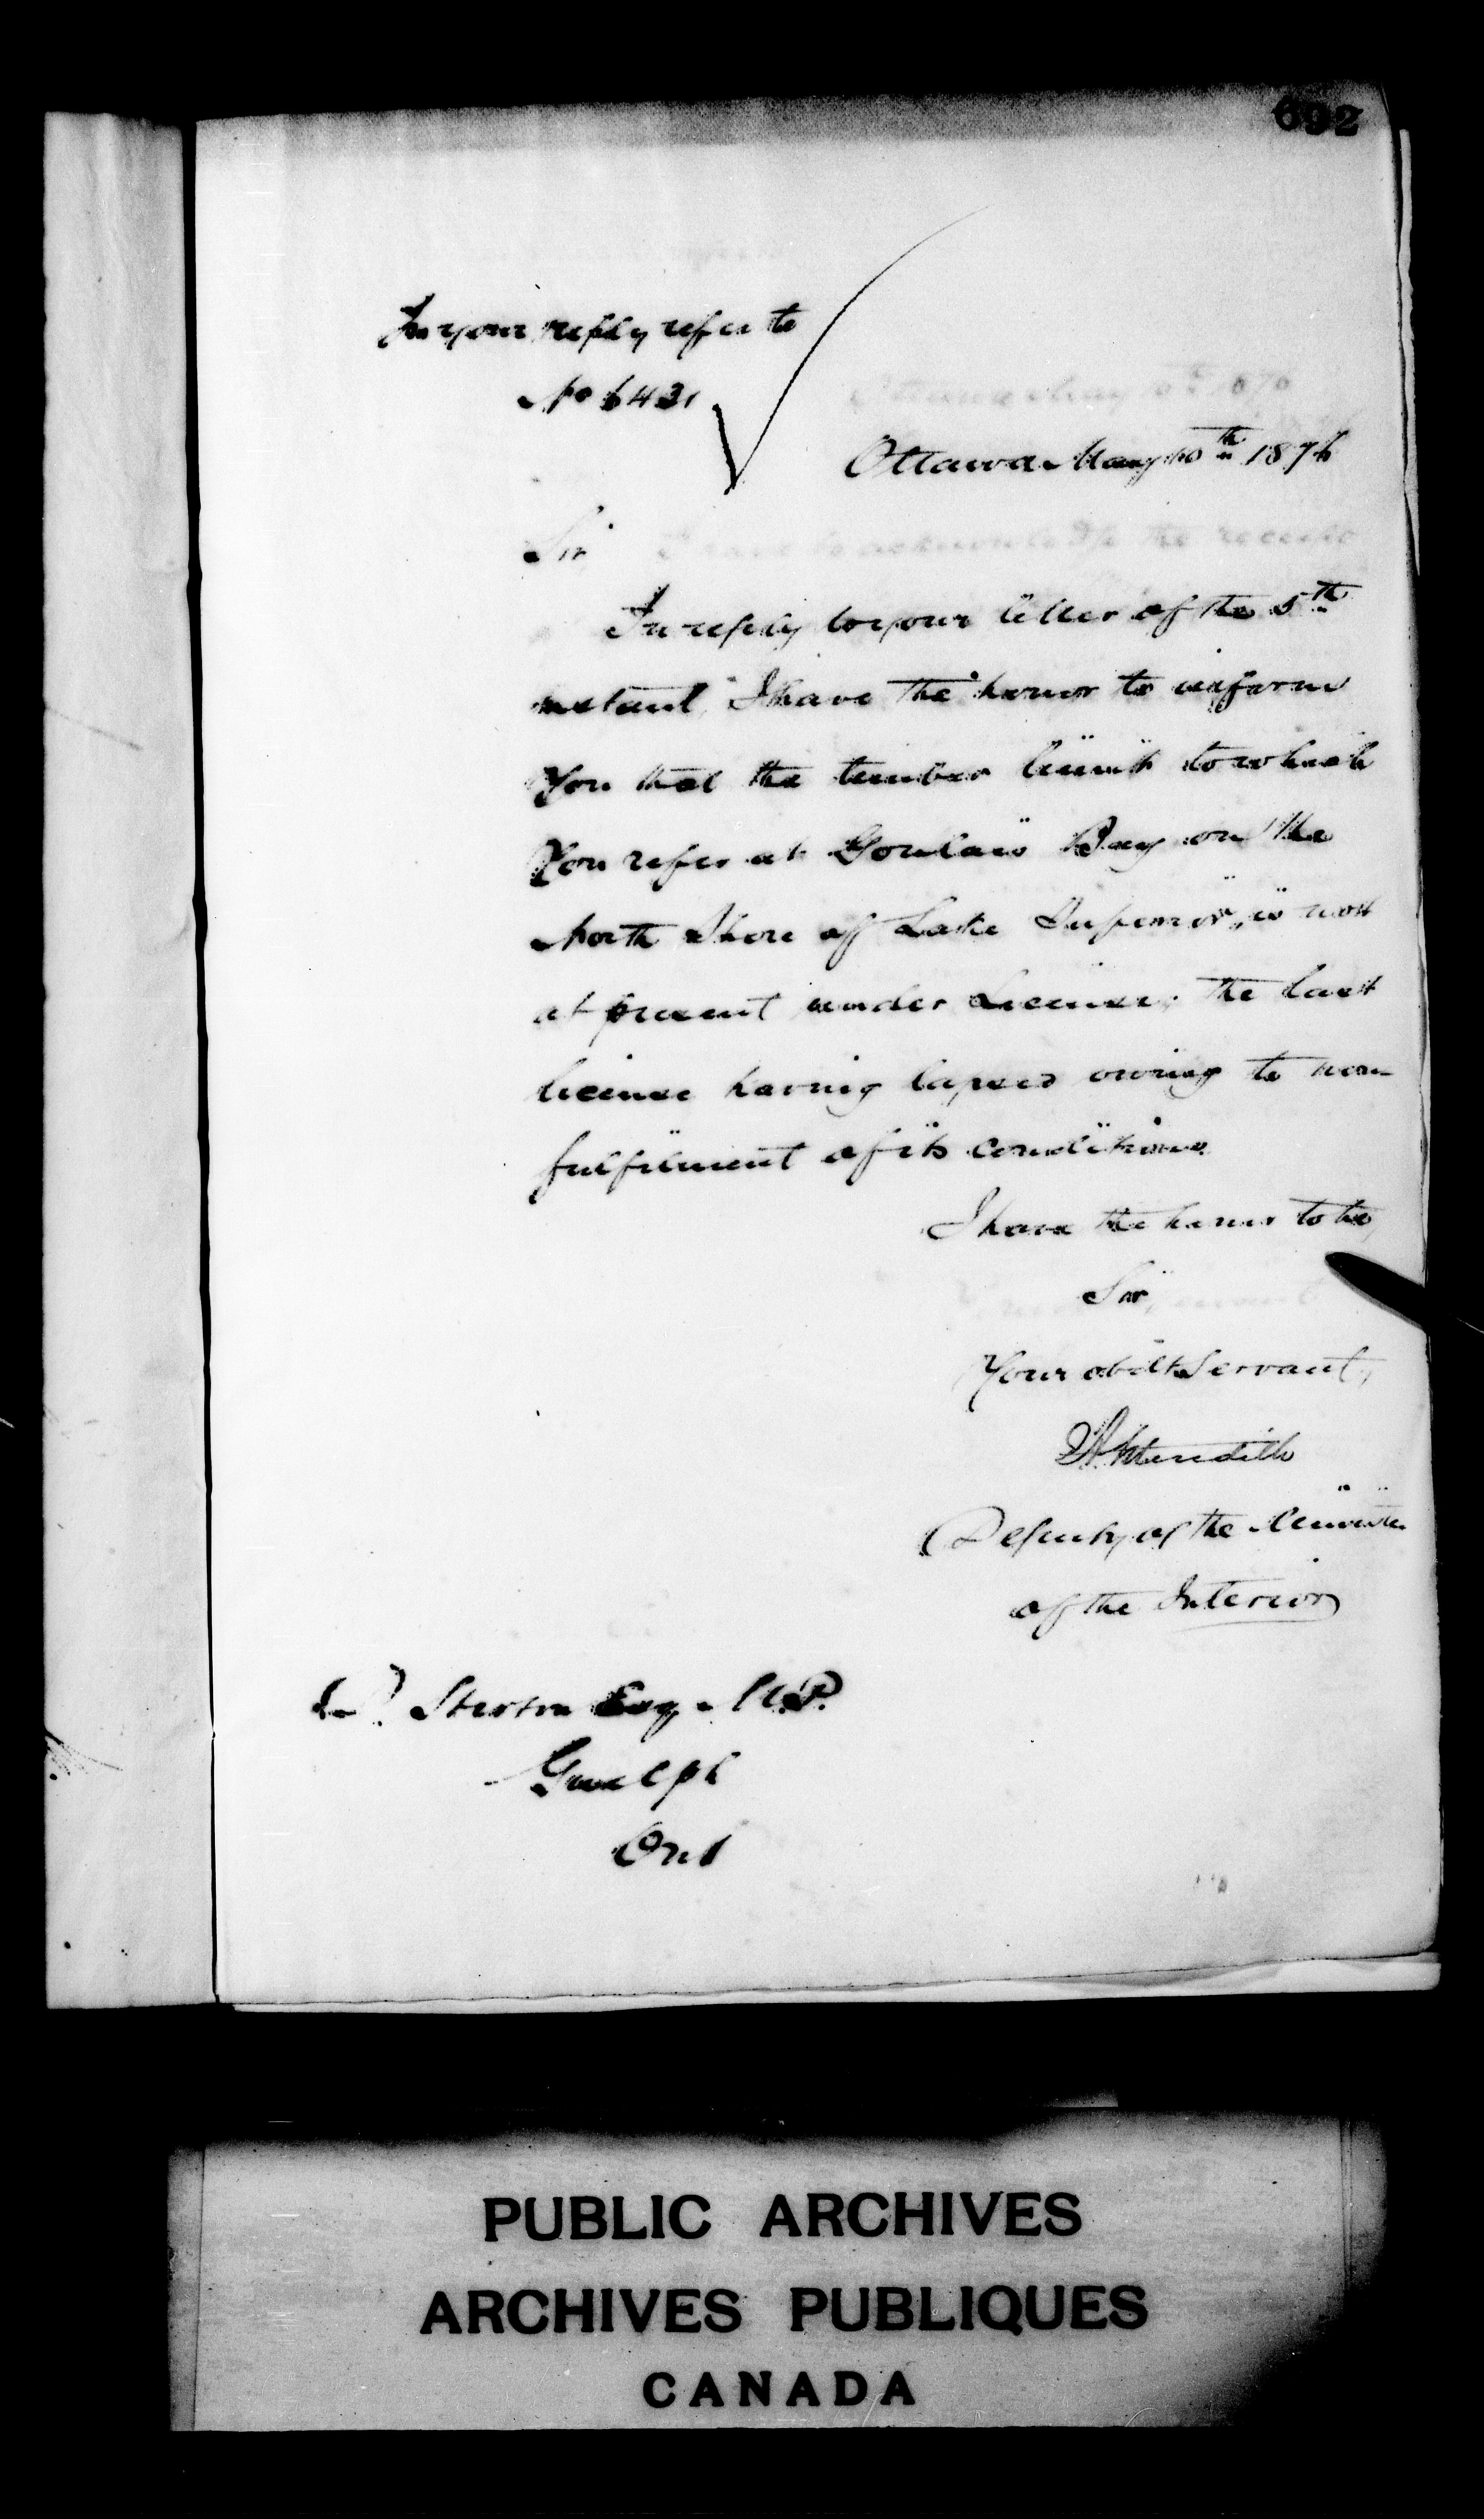 692
In your reply refer to
No 6431
Ottawa May 10th 1876
Sir
In reply to your letter of the 5th
instant, I have the honor to inform
You that the timber limit to which
You refer at Goulais Bay on the
North Shore of Lake Superior, is not
at present under License, the last
license having lapsed owing to non
fulfilment of its conditions
I have the honor to be,
Sir,
Your obdt Servant,
Meredith
Deputy of the Minister
of the Interior
D. Stirton Esq. M.P.
Guelph
Ont
PUBLIC ARCHIVES
ARCHIVES PUBLIQUES
CANADA